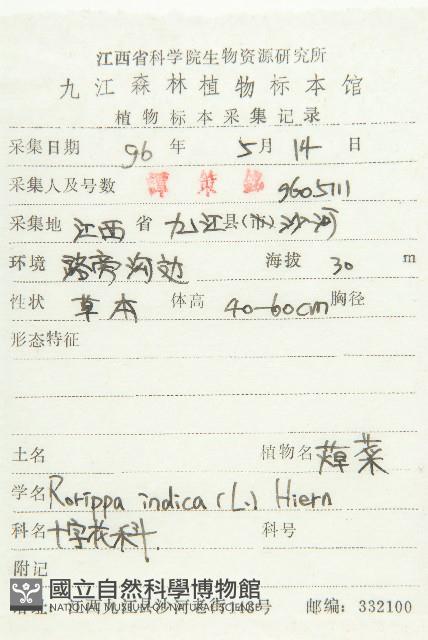 江西省科学院生物资源研究所
九江森林植物标本馆
植物标本采集记录
采集日期 96 年 5月 14 日
采集人及号数 譚策銘 9605111
采集地 江西 省 九江县(市)沙河
环境 路旁沟边 海拔 30 m
性状 草本 体高 40-60cm 胸径
形态特征
土名 植物名 蔊菜
学名 Rorippa indica (L.) Hiern
科名 十字花科 科号
附记
國立自然科學博物館
NATIONAL MUSEUM OF NATURAL SCIENCE
江西九江县沙河老街 号 邮编:332100